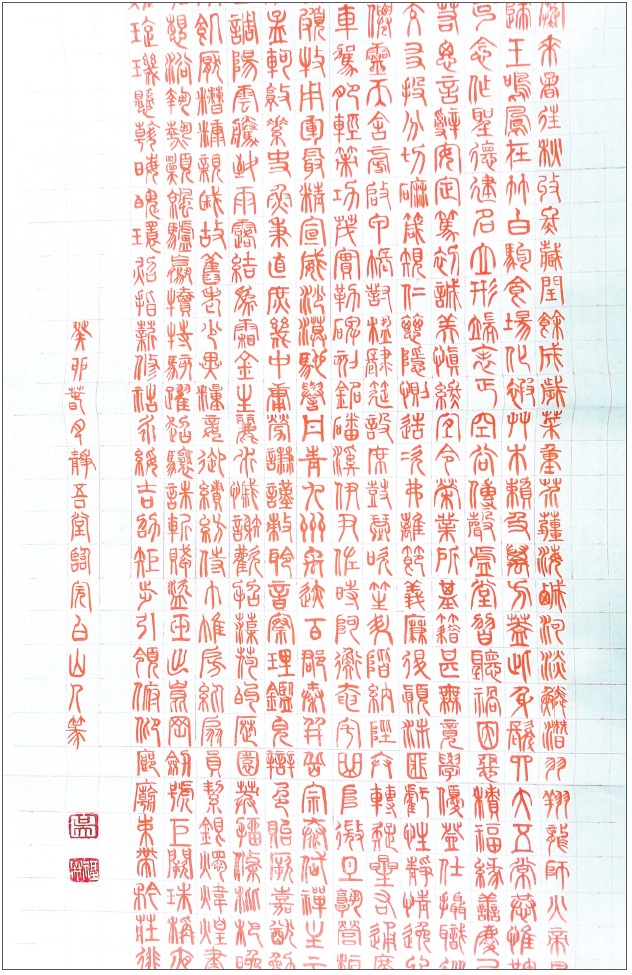 來暑往秋收冬藏閏餘成歲菜重芥薑海鹹河淡鱗潛羽翔龍師火帝
歸王鳴鳳在竹白駒食場化被草木賴及萬方蓋此身髮四大五常恭惟鞠
克念作聖德建名立形端表正空谷傳聲虛堂習聽禍因惡積福緣善慶尺
若思言辭安定篤初誠美慎終宜令榮業所基籍甚無竟學優登仕攝職從
交友投分切磨箴規仁慈隱惻造次弗離節義廉退顛沛匪虧性靜情逸心
僊靈丙舍旁啟甲帳對楹肆筵設席鼓瑟吹笙升階納陛弁轉疑星右通廣
車駕肥輕策功茂實勒碑刻銘磻溪伊尹佐時阿衡奄宅曲阜微旦孰營桓
頗牧用軍最精宣威沙漠馳譽丹青九州禹跡百郡秦并嶽宗泰岱禪主云
孟軻敦素史魚秉直庶幾中庸勞謙謹敕聆音察理鑑貌辯色貽厥嘉猷勉
調陽雲騰致雨露結為霜金生麗水慼謝歡招渠荷的歷園莽抽條枇杷晚
飢厭糟糠親戚故舊老少異糧妾御績紡侍巾帷房紈扇員絜銀燭煒煌晝
想浴執熱願涼驢騾犢特駭躍超驤誅斬賊盜玉出崑岡劍號巨闕珠稱夜
璇璣懸斡晦魄環照指薪修祜永綏吉劭矩步引領俯仰廊廟束帶矜莊徘
癸卯春月靜吾堂臨完白山人篆